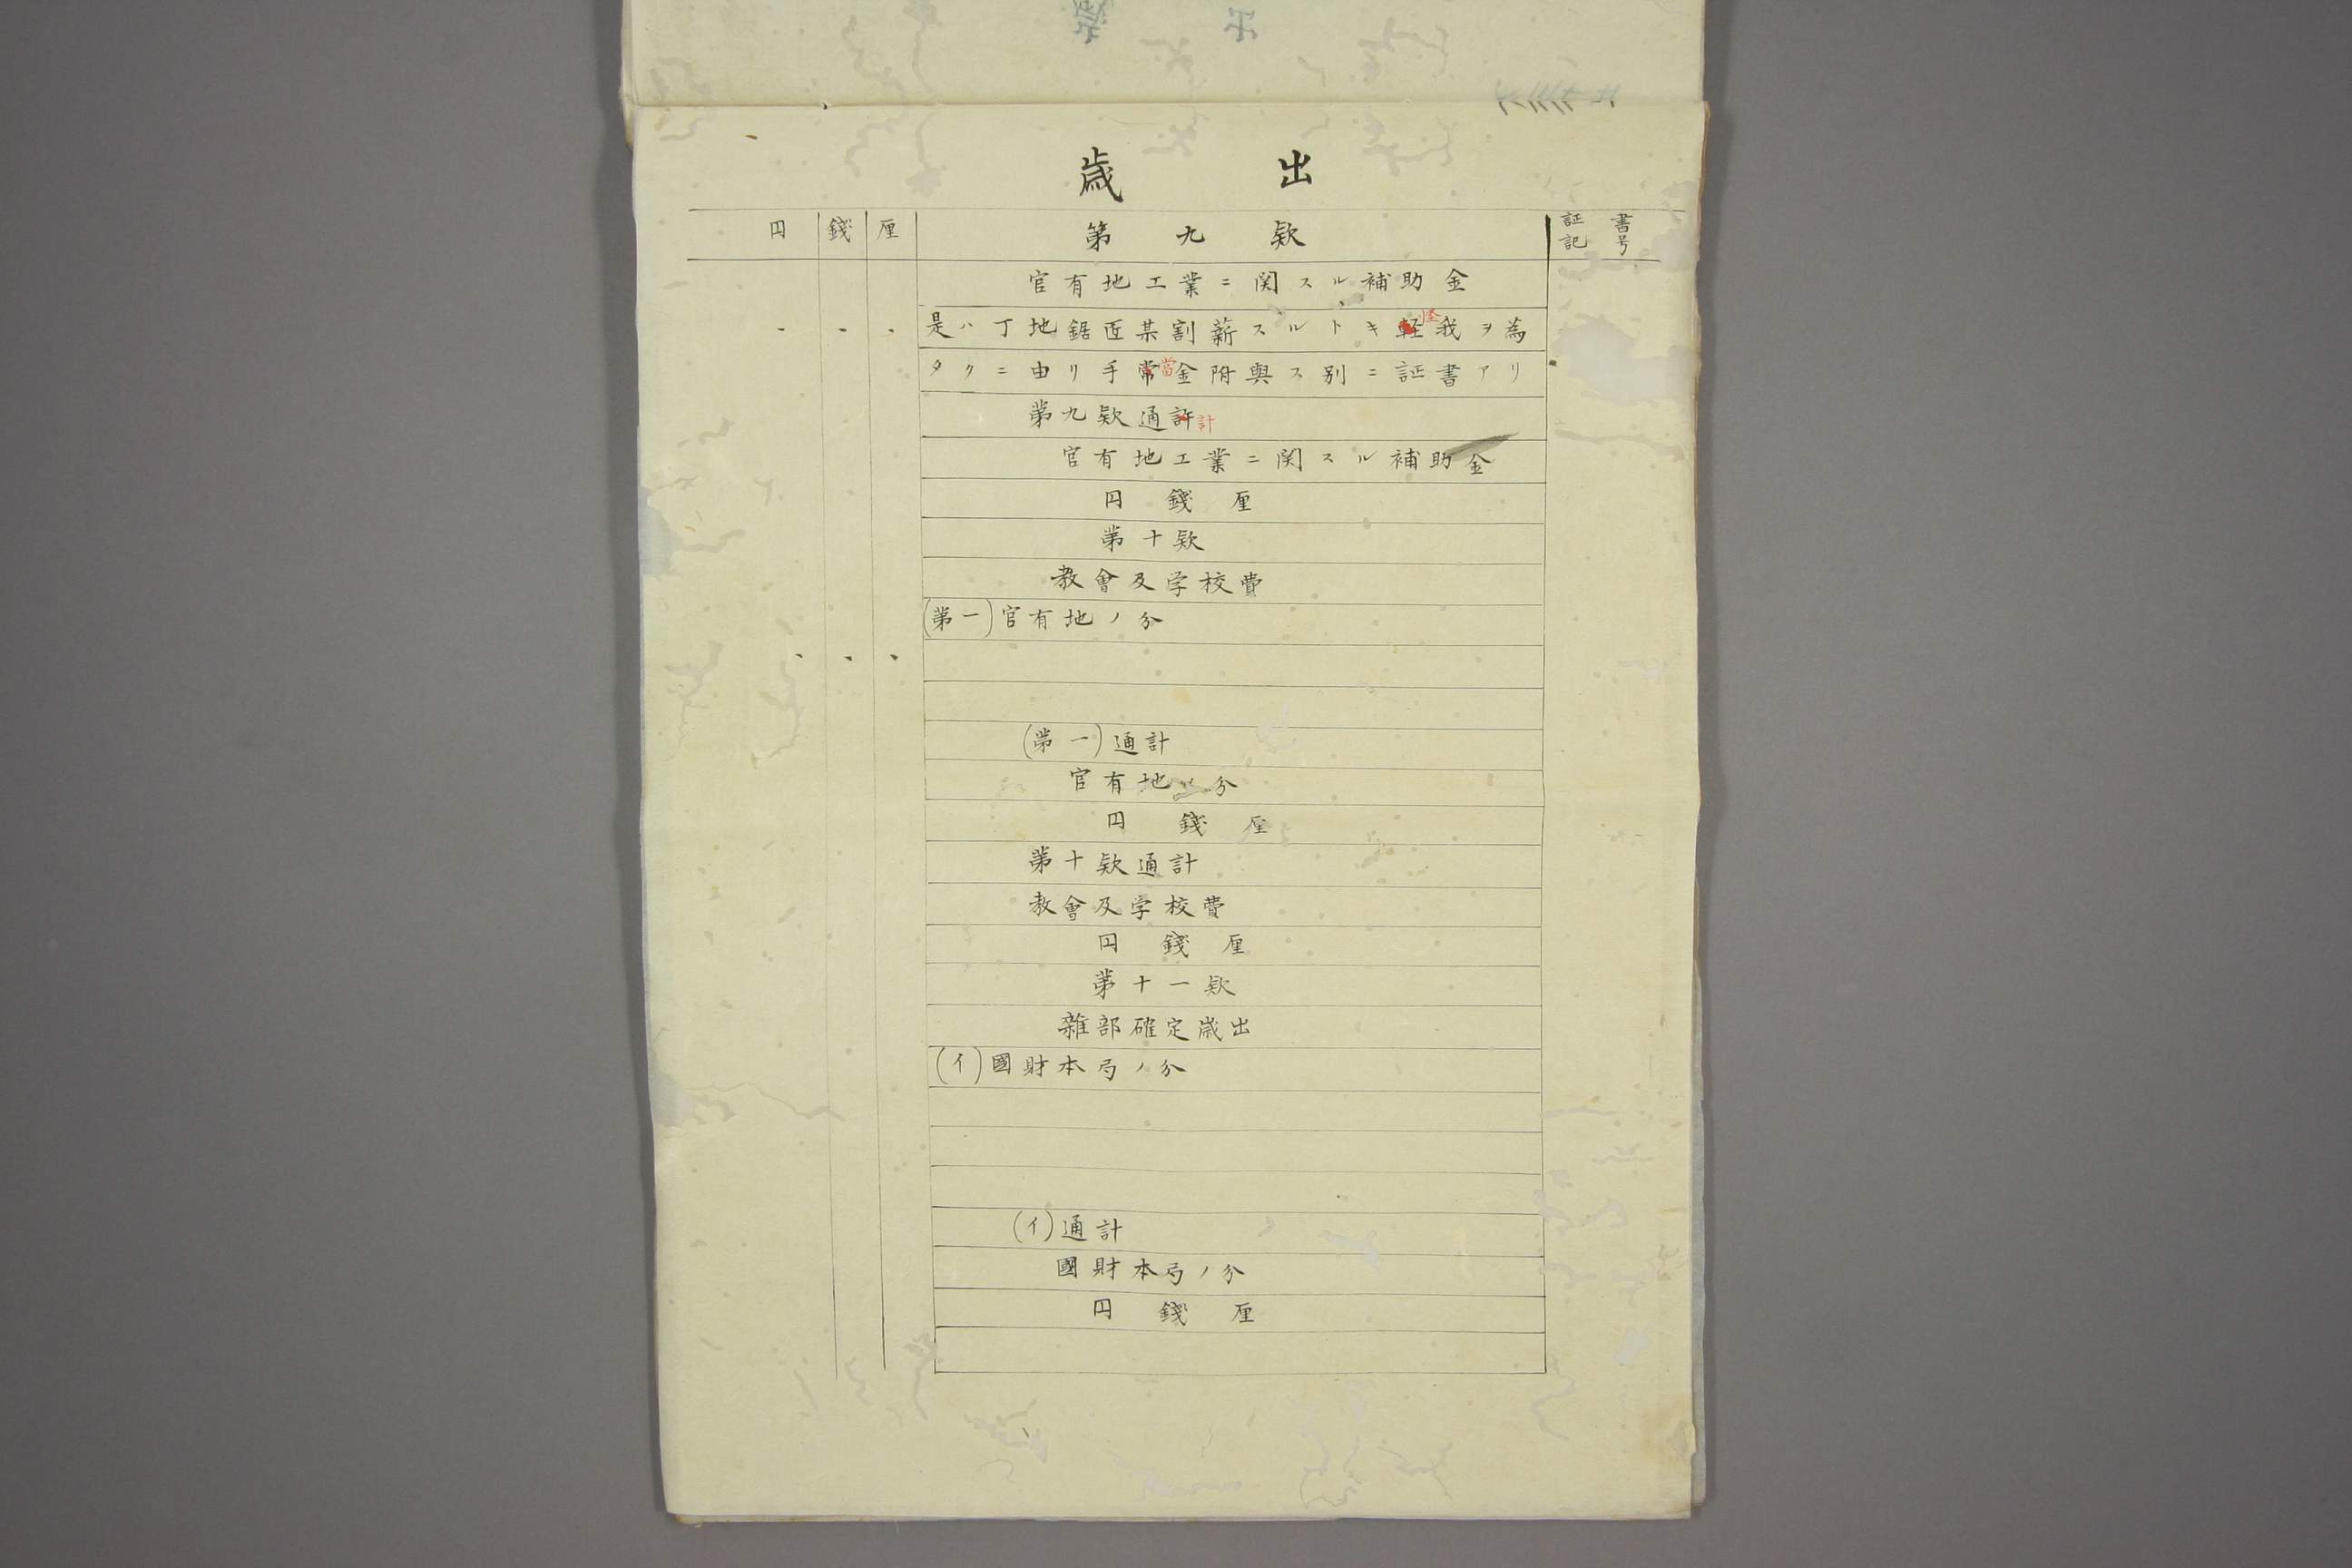 歳出
円 錢 厘 第九欵 証書
記号
官有地工業ニ関スル補助金
是ハ丁地鋸匠某割薪スルトキ軽怪我ヲ為
タクニ由リ手常當金附與ス別ニ証書アリ
第九欵通許計
官有地工業ニ関スル補助金
円 錢 厘
第十欵
教會及学校費
(第一)官有地ノ分
(第一)通計
官有地ノ分
円 錢 厘
第十欵通計
教會及学校費
円 錢 厘
第十一欵
雜部確定歳出
(イ)國財本局ノ分
(イ)通計
國財本局ノ分
円 錢 厘